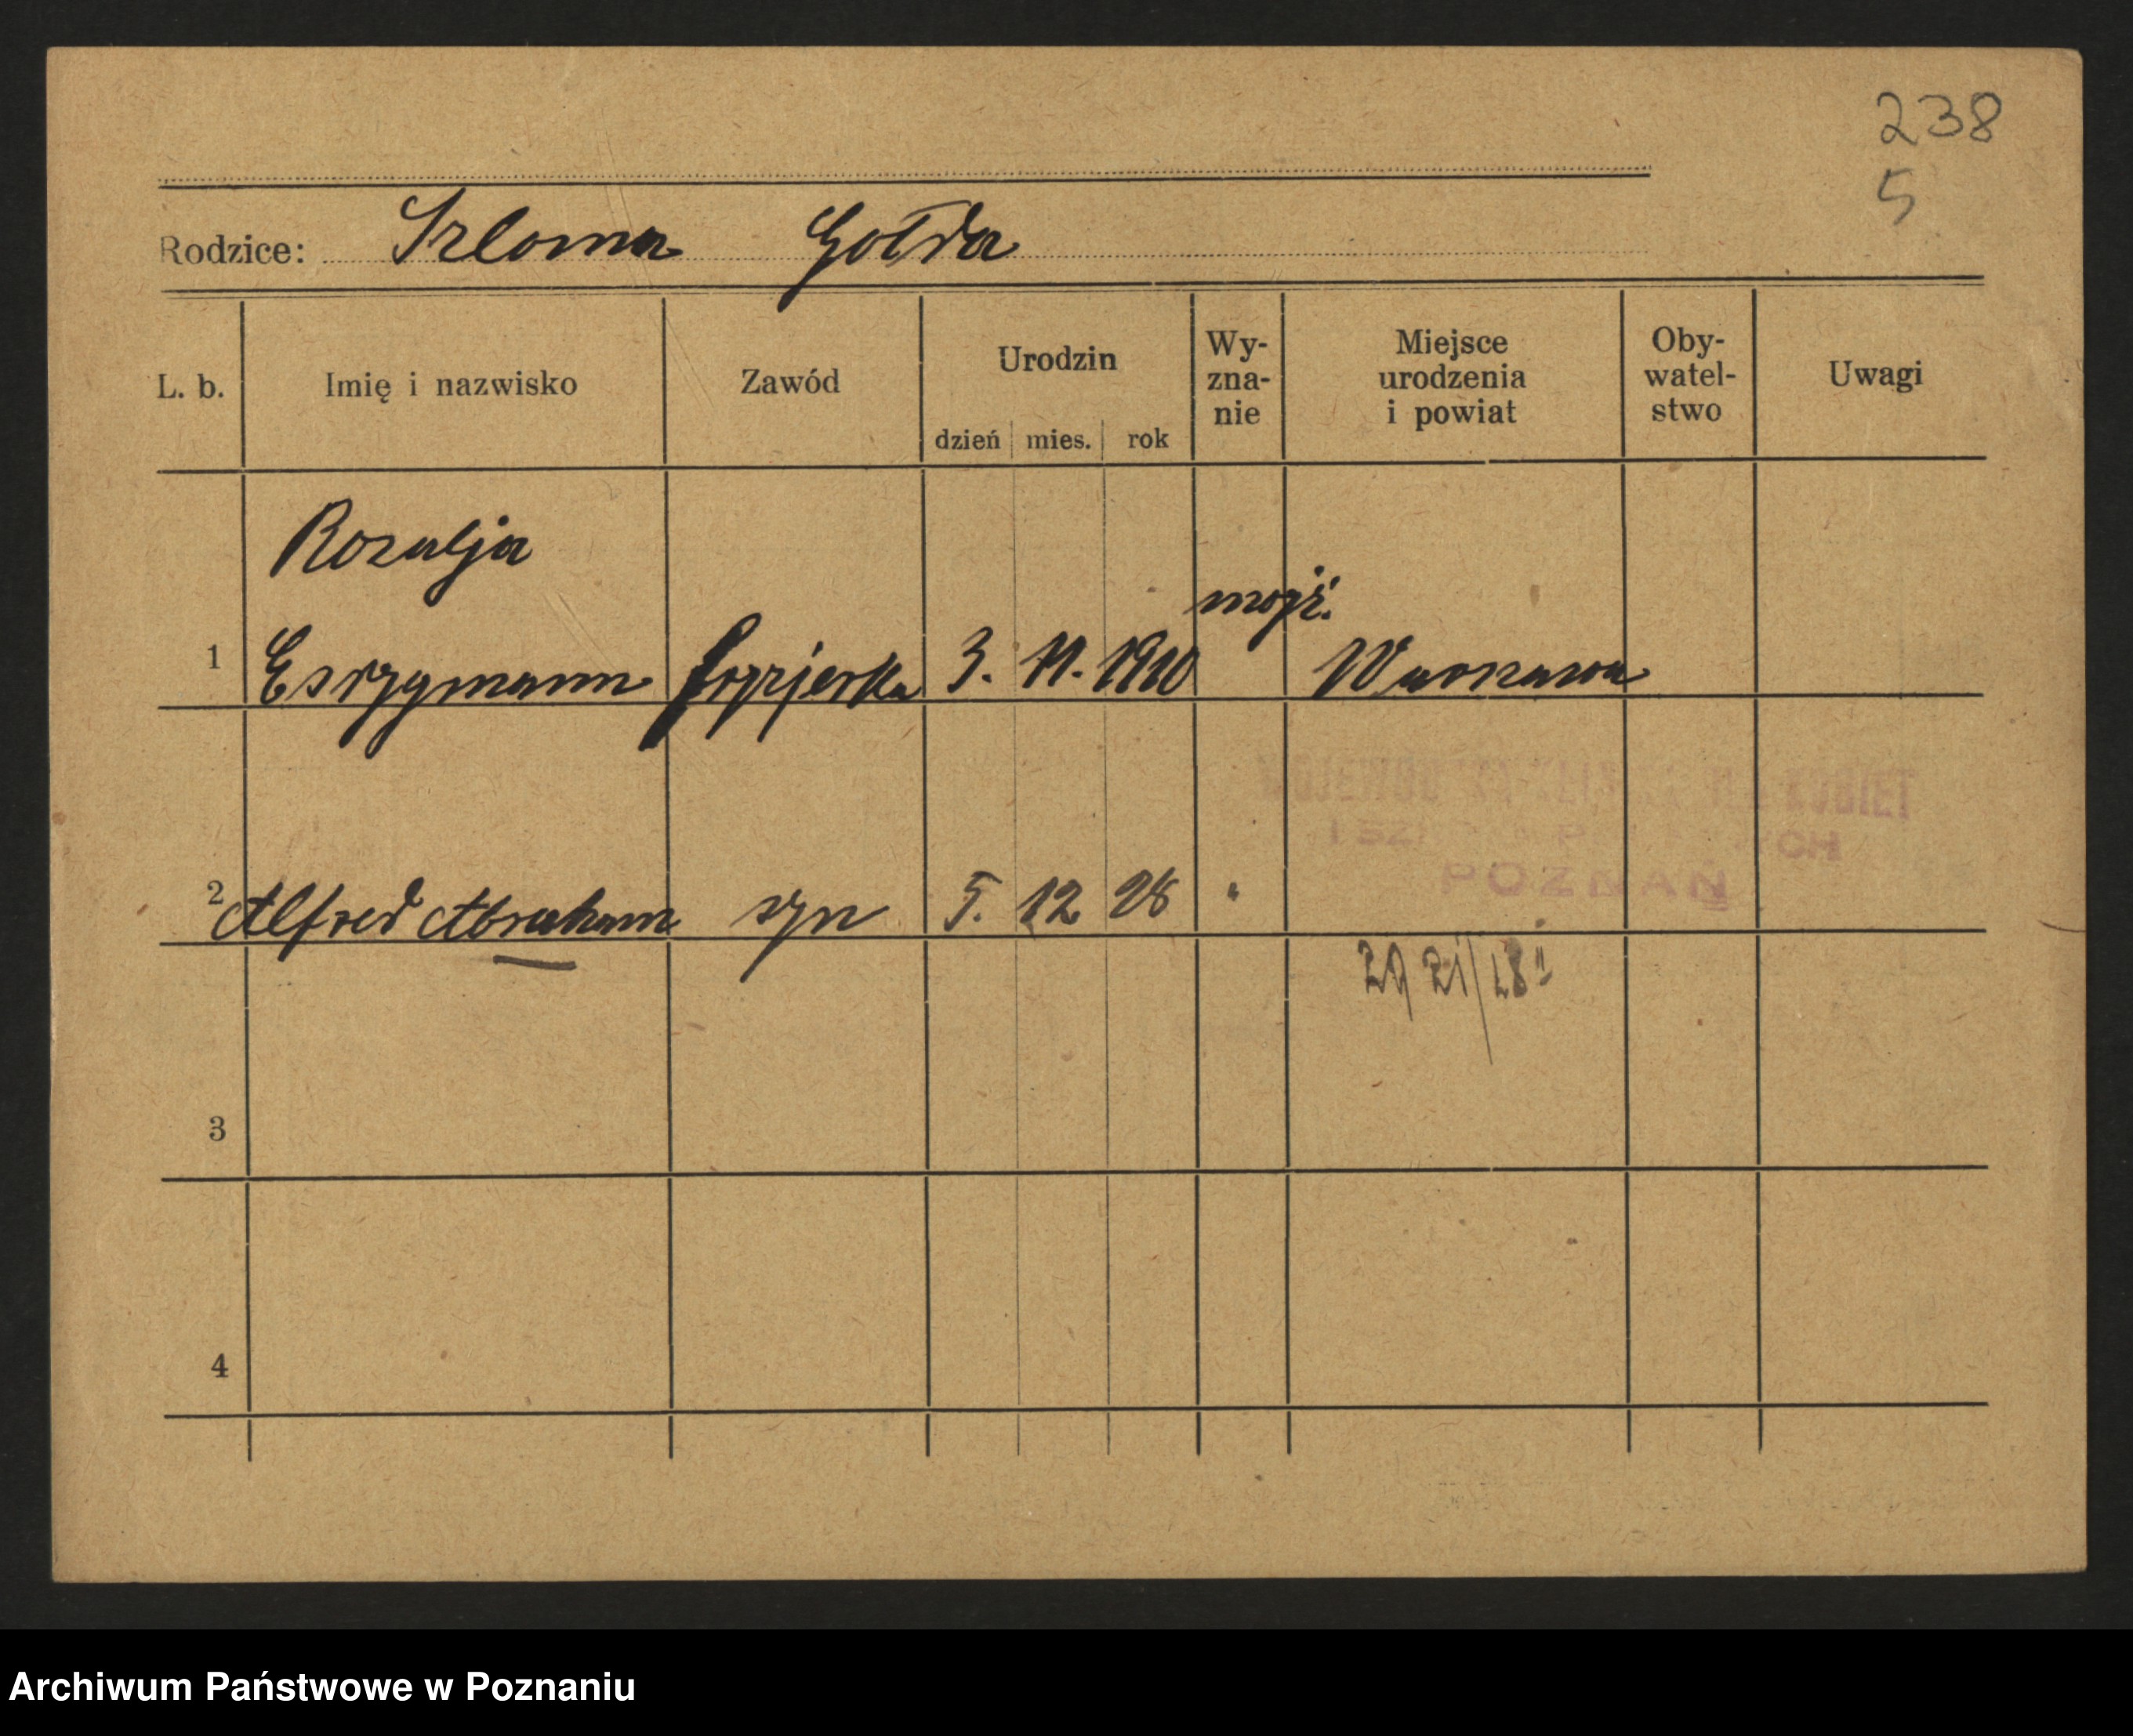 238
5
Rodzice: Szloma Gołda
L. b. Imię i nazwisko Zawód Urodzin dzień mies. rok Wy- zna- nie Miejsce urodzenia i powiat Oby- watel- stwo Uwagi
Rozalja
mojż.
1 fryzjerka 3. 11. 1910 Warszawa
KOBIET
POZNAŃ
2 Alfred Abraham syn 5. 12 28 "
3
4
Archiwum Państwowe w Poznaniu